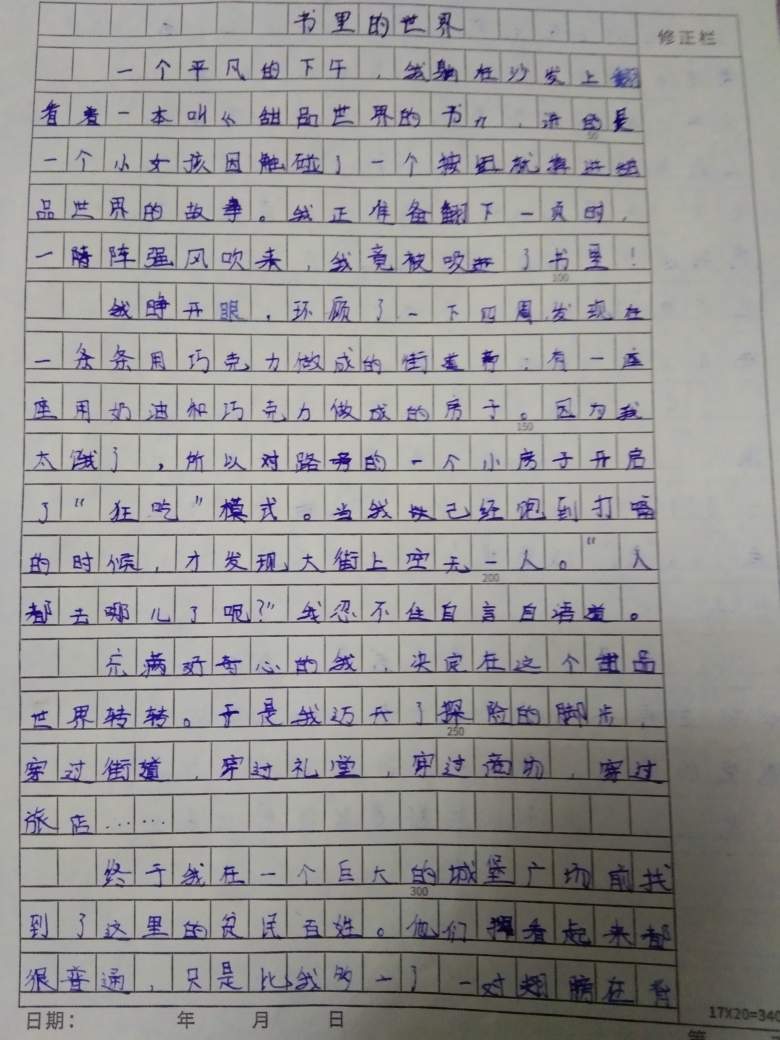 书里的世界
修正栏
一个平风的下午，我躺在沙发上翻
看着一本叫《甜品世界的书》，讲的是
一个小女孩因触碰了一个按钮就掉进甜
品世界的故事。我正准备翻下一页时，
一阵阵强风吹来，我竟被吸进了书里！
我睁开眼，环顾了一下四周，发现在
一条条用巧克力做成的街道旁，有一座
座用奶油和巧克力做成的房子。因为我
太饿了，所以对路旁的一个小房子开启
了“狂吃”模式。当我已经饱到打嗝
的时候，才发现，大街上空无一人。“人
都去哪儿了呢？”我忍不住自言自语道。
充满好奇心的我，决定在这个甜品
世界转转。于是我迈开了探险的脚步，
穿过街道，穿过礼堂，穿过商场，穿过
旅店……
终于我在一个巨大的城堡广场前找
到了这里的贫民百姓。他们看起来都
很普通，只是比我多一了一对翅膀在背
50
100
150
200
250
300
日期： 年 月 日
17X20=340
第